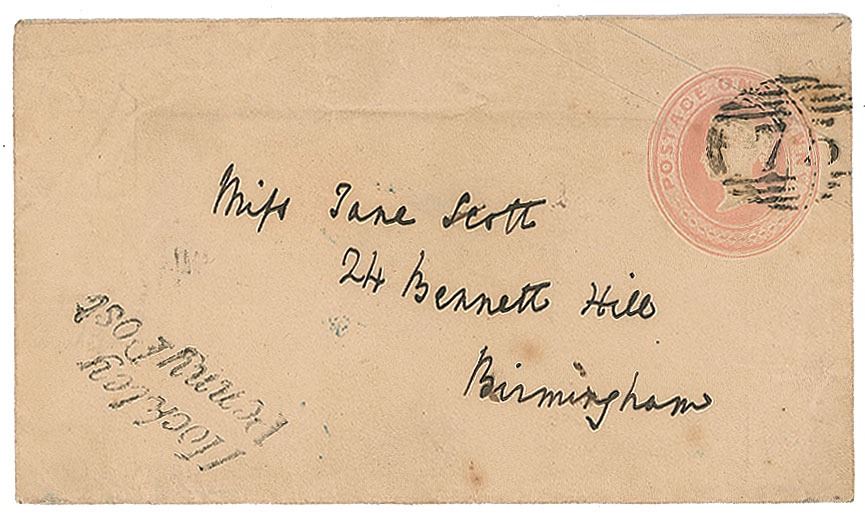 POSTAGE ONE PENNY
75
Miſs Jane Scott
24 Bennett Hill
Birmingham
Hockley
Penny Post